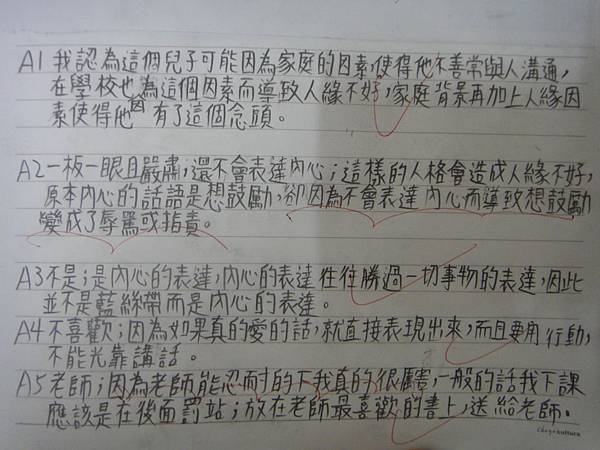 A1 我認為這個兒子可能因為家庭的因素,使得他不善常與人溝通,
在學校也為這個因素而導致人緣不好,家庭背景再加上人緣因
素使得他因有了這個念頭。
A2 一板一眼且嚴肅;還不會表達內心;這樣的人格會造成人緣不好,
原本內心的話語是想鼓勵,卻因為不會表達內心而導致想鼓勵
變成了辱罵或指責。
A3 不是;是內心的表達,內心的表達往往勝過一切事物的表達,因此
並不是藍絲帶而是內心的表達。
A4 不喜歡;因為如果真的愛的話,就直接表現出來,而且要用行動,
不能光靠講話。
A5 老師;因為老師能忍耐的下我真的很厲害,一般的話我下課
應該是在後面罰站;放在老師最喜歡的書上,送給老師。